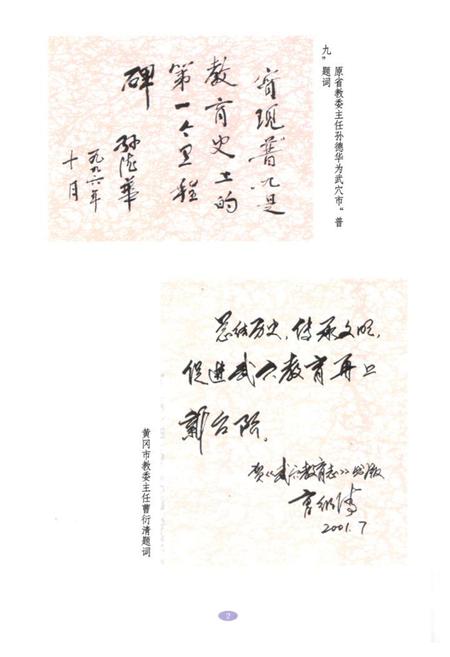 原省教委主任孙德华为武穴市“普
九”题词
实现“普九”是
教育史上的
第一个里程
碑
孙德华
一九九六年
十月
总结历史,传承文明,
促进武穴教育再上
新台阶。
贺《武穴教育志》出版
2001.7
黄冈市教委主任曹衍清题词
2